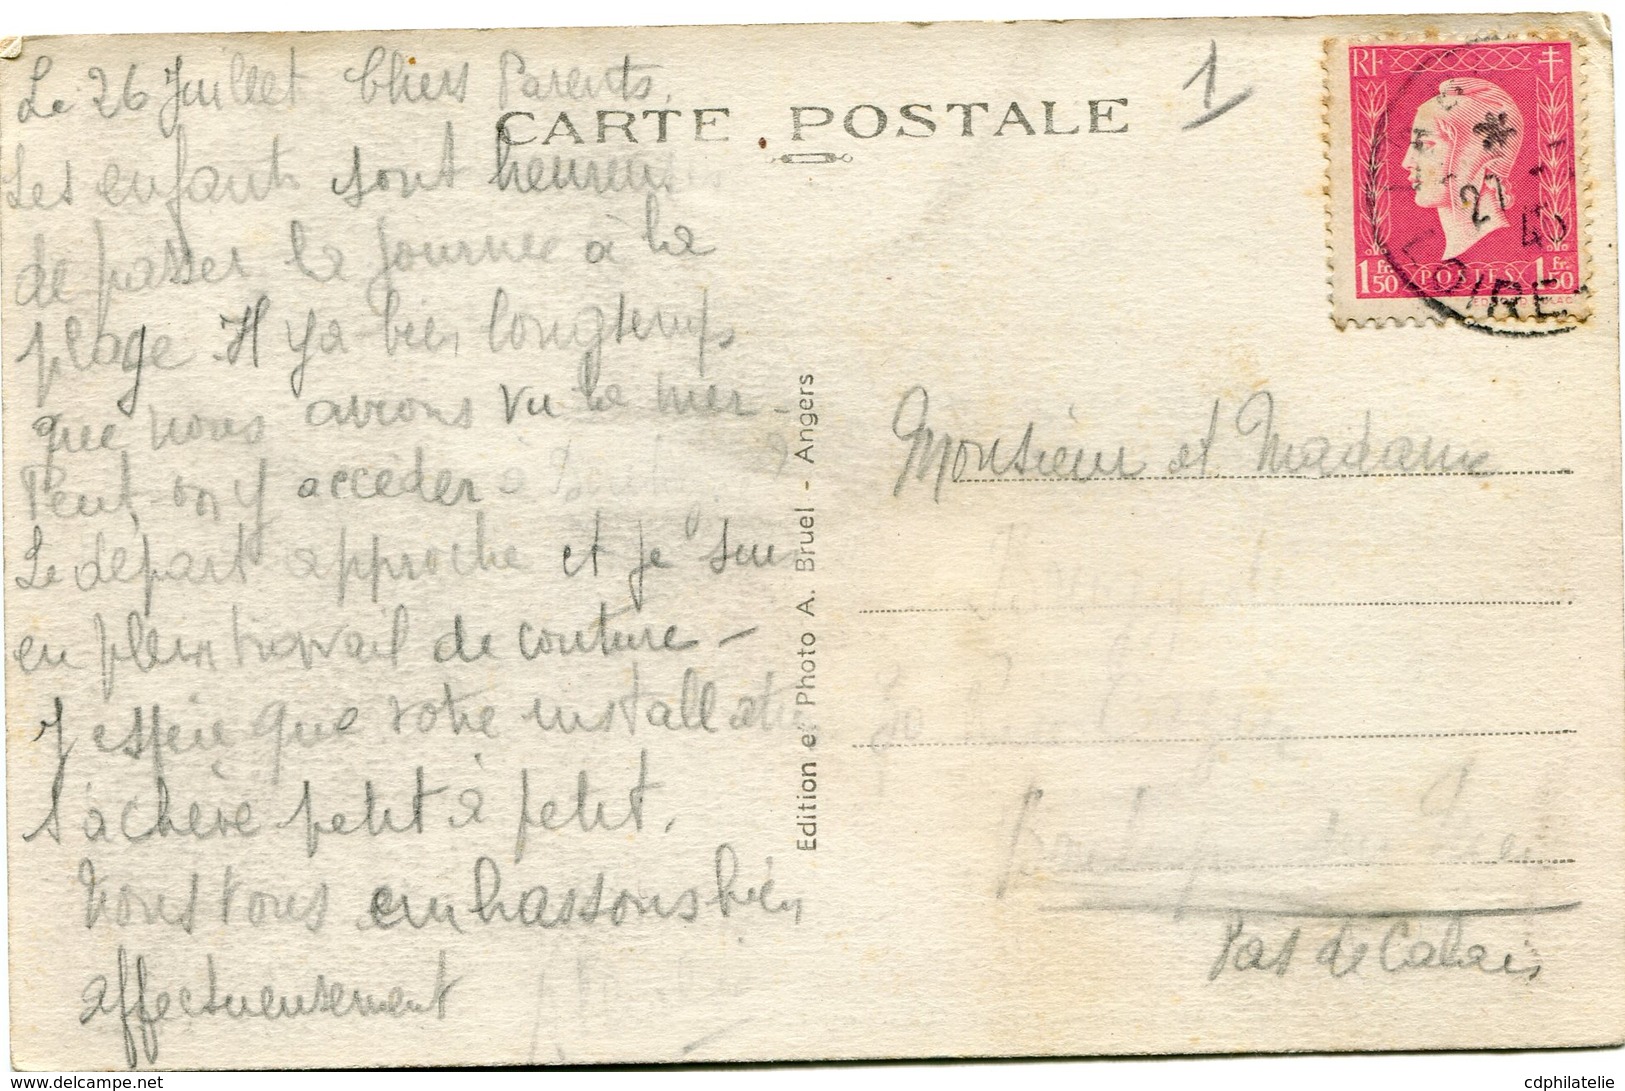 Le 26 Juillet. Chers Parents,
CARTE POSTALE
1
RF
27
45
1 fr. 50 POSTES 1 fr. 50
LOIRE
Les enfants sont heureux
de passer la journée à la
plage. Il y a bien longtemps
que nous avions vu la mer -
Peut-on y accéder à ?
Le départ approche et je suis
en plein travail de couture -
J'espère que votre installation
s'achève petit à petit.
Nous vous embrassons bien
affectueusement
Edition et Photo A. Bruel - Angers
Monsieur et Madame
Pas de Calais
cdphilatelie